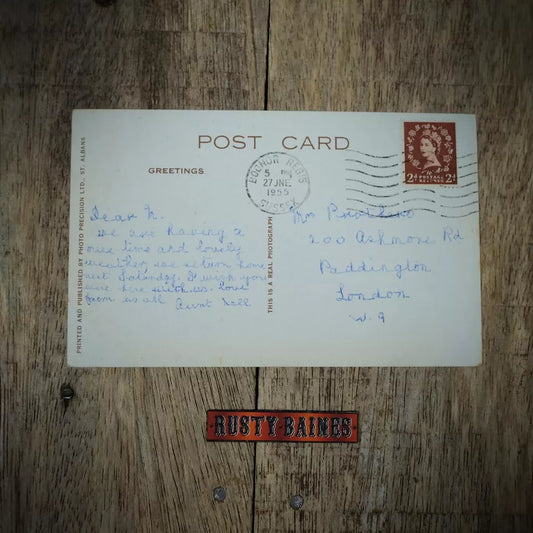 POST CARD
GREETINGS
BOGNOR REGIS
5 PM
27 JNE
1955
SUSSEX
2d POSTAGE REVENUE 2d
PRINTED AND PUBLISHED BY PHOTO PRECISION LTD., ST. ALBANS
Dear N.
we are having a
nice time and lovely
weather, we return home
next Saturday. I wish you
were here with us. Love
from us all Aunt Nell
THIS IS A REAL PHOTOGRAPH
Mrs
200 Ashmore Rd
Paddington
London
W. 9
RUSTY·BAINES